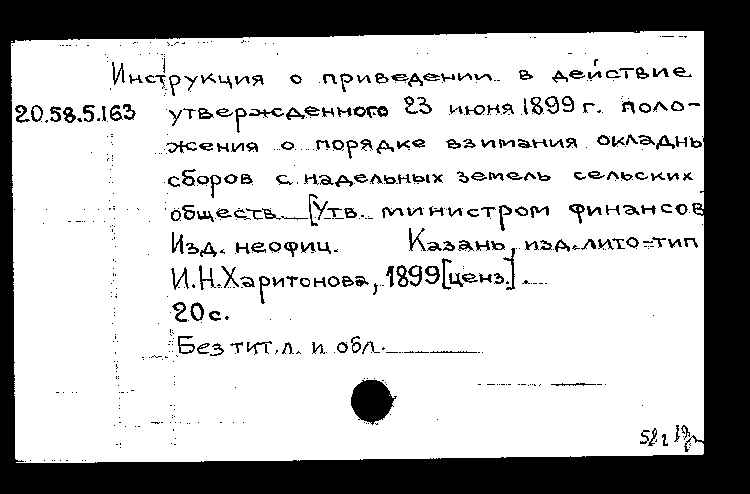 Инструкция о приведении в действие
20.58.5.163 утвержденного 23 июня 1899 г. поло-
жения о порядке взимания окладны
сборов с надельных земель сельских
обществ. [Утв. министром финансов
Изд. неофиц. Казань, изд. лито-тип
И.Н.Харитонова, 1899 [ценз.].
20 с.
Без тит.л. и обл.
58 г